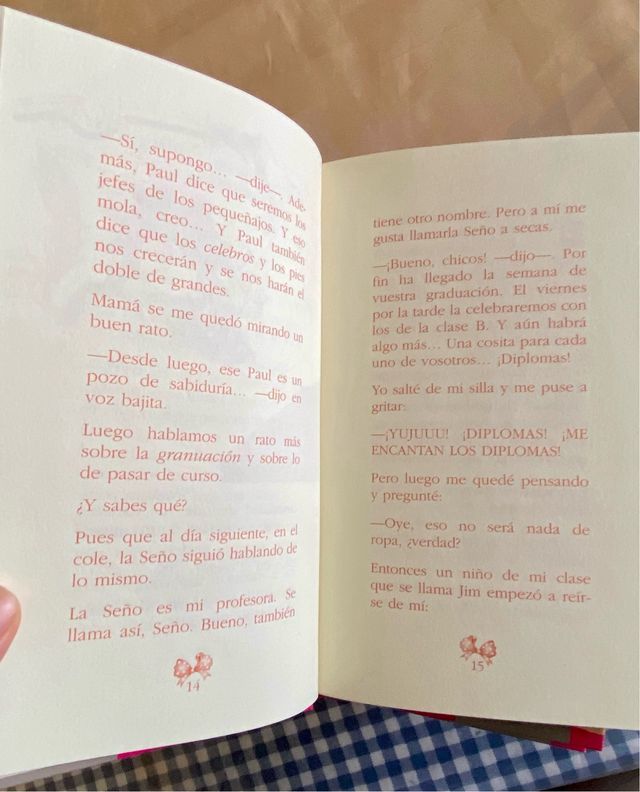 —Sí, supongo... —dije—. Ade-
más, Paul dice que seremos los
jefes de los pequeñajos. Y eso
mola, creo... Y Paul también
dice que los celebros y los pies
nos crecerán y se nos harán el
doble de grandes.
Mamá se me quedó mirando un
buen rato.
—Desde luego, ese Paul es un
pozo de sabiduría... —dijo en
voz bajita.
Luego hablamos un rato más
sobre la granuación y sobre lo
de pasar de curso.
¿Y sabes qué?
Pues que al día siguiente, en el
cole, la Seño siguió hablando de
lo mismo.
La Seño es mi profesora. Se
llama así, Seño. Bueno, también
14
tiene otro nombre. Pero a mí me
gusta llamarla Seño a secas.
—¡Bueno, chicos! —dijo—. Por
fin ha llegado la semana de
vuestra graduación. El viernes
por la tarde la celebraremos con
los de la clase B. Y aún habrá
algo más... Una cosita para cada
uno de vosotros... ¡Diplomas!
Yo salté de mi silla y me puse a
gritar:
—¡YUJUUU! ¡DIPLOMAS! ¡ME
ENCANTAN LOS DIPLOMAS!
Pero luego me quedé pensando
y pregunté:
—Oye, eso no será nada de
ropa, ¿verdad?
Entonces un niño de mi clase
que se llama Jim empezó a reír-
se de mí:
15